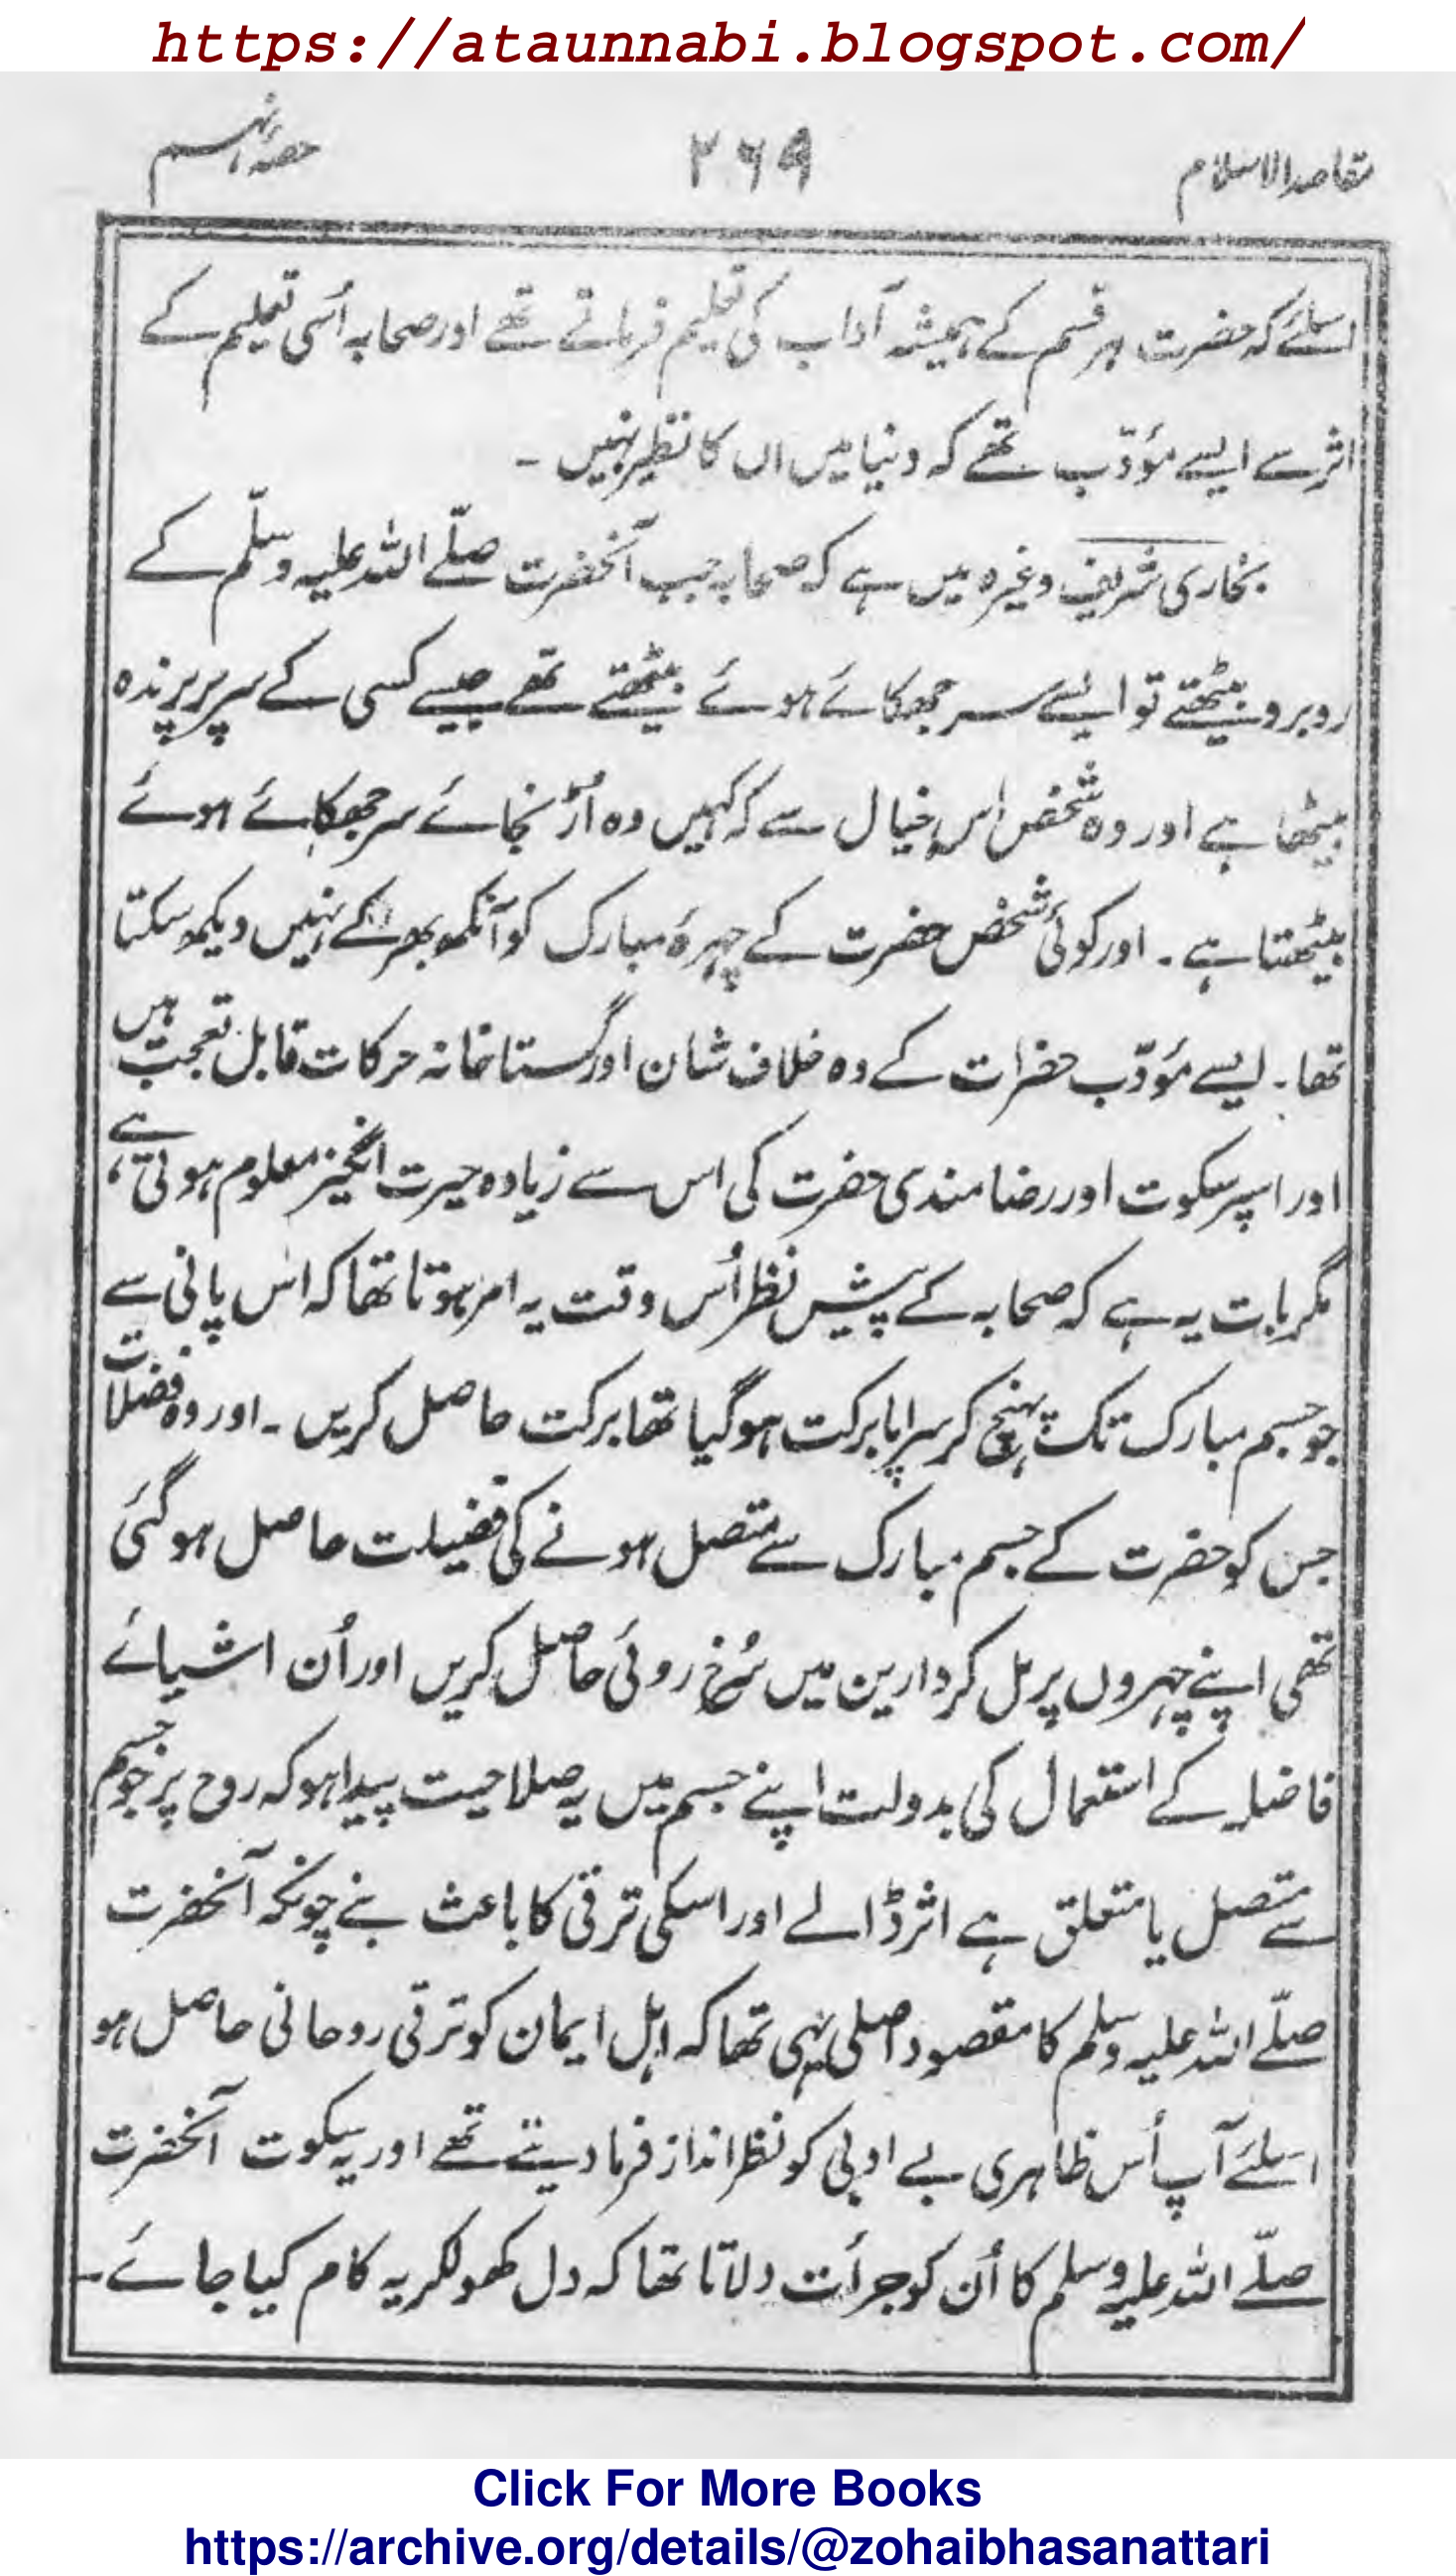 https://ataunnabi.blogspot.com/
مقاصد الاسلام ۲۶۹ حصہ نہم
اسلئے کہ حضرت ہر قسم کے ہمیشہ آداب کی تعلیم فرماتے تھے اور صحابہ اُسی تعلیم کے
اثر سے ایسے مؤدّب تھے کہ دنیا میں اں کا نظیر نہیں ۔
بخاری شریف وغیرہ میں ہے کہ صحابہ جب آنحضرت صلّے اللہ علیہ وسلّم کے
روبرو بیٹھتے تو ایسے سر جھکائے ہوئے بیٹھتے تھے جیسے کسی کے سر پر پرندہ
بیٹھا ہے اور وہ شخص اس خیال سے کہ کہیں وہ اُڑ نجائے سر جھکائے ہوئے
بیٹھتا ہے ۔ اور کوئی شخص حضرت کے چہرۂ مبارک کو آنکھ بھر کے نہیں دیکھ سکتا
تھا ۔ ایسے مؤدّب حضرات کے وہ خلاف شان اور گستاخانہ حرکات قابل تعجب ہیں
اور اسپر سکوت اور رضامندی حضرت کی اس سے زیادہ حیرت انگیز معلوم ہوتی ہے ،
مگر بات یہ ہے کہ صحابہ کے پیش نظر اُس وقت یہ امر ہوتا تھا کہ اس پانی سے
جو جسم مبارک تک پہنچ کر سراپا برکت ہو گیا تھا برکت حاصل کریں ۔ اور وہ فضلات
جس کو حضرت کے جسم مبارک سے متصل ہونے کی فضیلت حاصل ہو گئی
تھی اپنے چہروں پر مل کر دارین میں سُرخ روئی حاصل کریں اور اُن اشیائے
فاضلہ کے استعمال کی بدولت اپنے جسم میں یہ صلاحیت پیدا ہو کہ روح پر جو جسم
سے متصل یا متعلق ہے اثر ڈالے اور اسکی ترقی کا باعث بنے چونکہ آنحضرت
صلّے اللہ علیہ وسلم کا مقصود اصلی یہی تھا کہ اہل ایمان کو ترقی روحانی حاصل ہو
اسلئے آپ اُس ظاہری بے ادبی کو نظر انداز فرما دیتے تھے اور یہ سکوت آنحضرت
صلّے اللہ علیہ وسلم کا اُن کو جرأت دلاتا تھا کہ دل کھولکر یہ کام کیا جائے ۔
Click For More Books
https://archive.org/details/@zohaibhasanattari